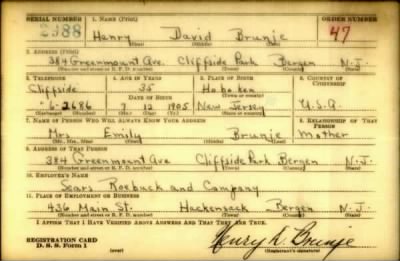 SERIAL NUMBER 1. NAME (Print) ORDER NUMBER
2388 Henry David Brunje 47
(First) (Middle) (Last)
2. ADDRESS (Print)
384 Greenmount Ave. Cliffside Park Bergen N.J.
(Number and street or R. F. D. number) (Town) (County) (State)
3. TELEPHONE 4. AGE IN YEARS 5. PLACE OF BIRTH 6. COUNTRY OF CITIZENSHIP
Cliffside 35 Hoboken
DATE OF BIRTH (Town or county)
6-2686 7 12 1905 New Jersey U.S.A.
(Exchange) (Number) (Mo.) (Day) (Yr.) (State or country)
7. NAME OF PERSON WHO WILL ALWAYS KNOW YOUR ADDRESS 8. RELATIONSHIP OF THAT PERSON
Mrs Emily Brunje Mother
(Mr., Mrs., Miss) (First) (Middle) (Last)
9. ADDRESS OF THAT PERSON
384 Greenmount Ave Cliffside Park Bergen N.J.
(Number and street or R. F. D. number) (Town) (County) (State)
10. EMPLOYER'S NAME
Sears Roebuck and Company
11. PLACE OF EMPLOYMENT OR BUSINESS
436 Main St. Hackensack Bergen N.J.
(Number and street or R. F. D. number) (Town) (County) (State)
I AFFIRM THAT I HAVE VERIFIED ABOVE ANSWERS AND THAT THEY ARE TRUE.
REGISTRATION CARD
D. S. S. Form 1 (over) Henry D. Brunje
(Registrant's signature)